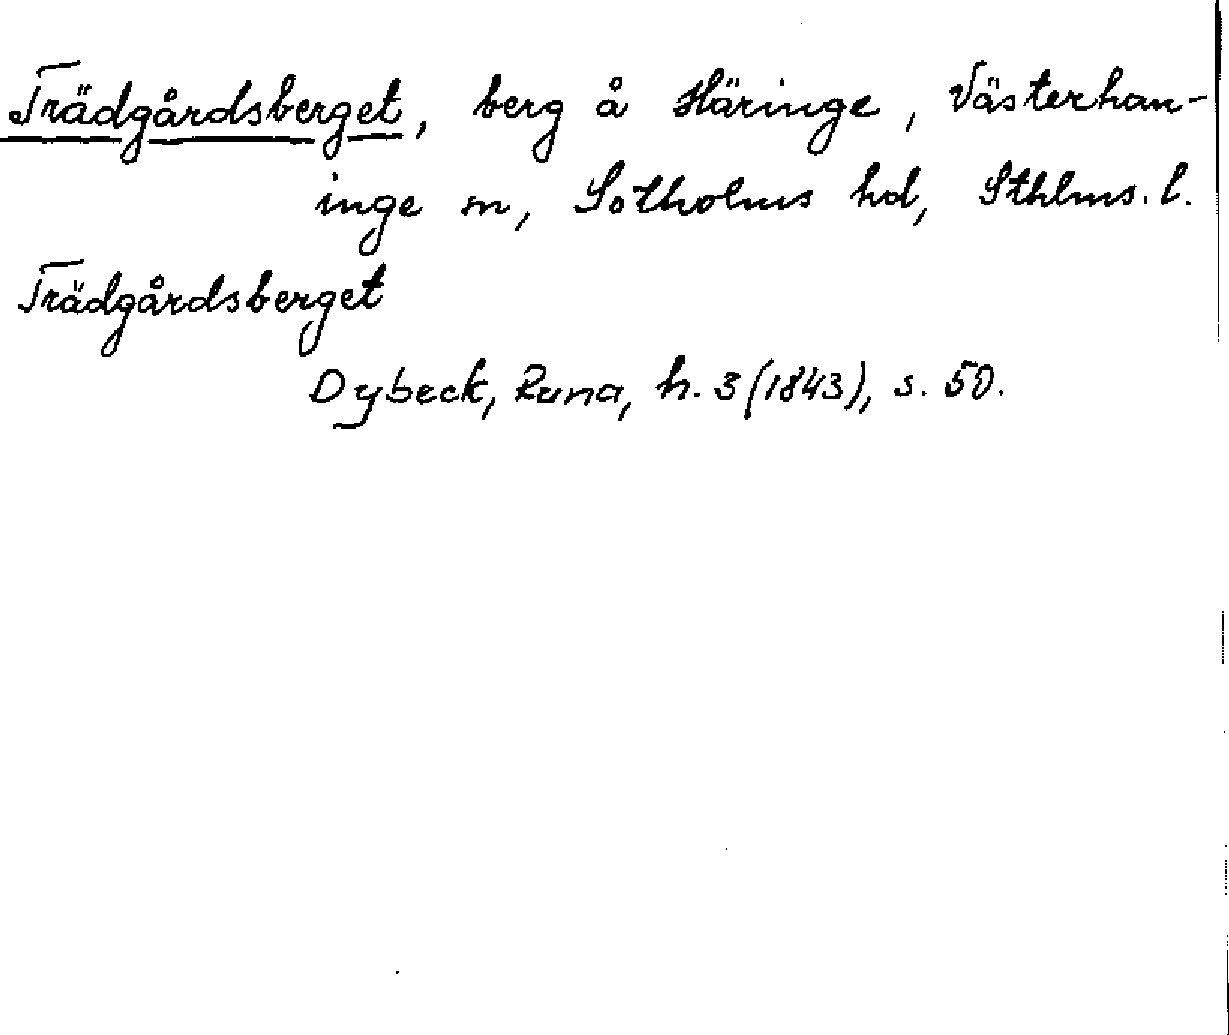 Trädgårdsberget, berg å Häringe, Västerhan-
inge sn, Sotholms hd, Sthlms. l.
Trädgårdsberget
Dybeck, Runa, h. 3 (1843), s. 50.